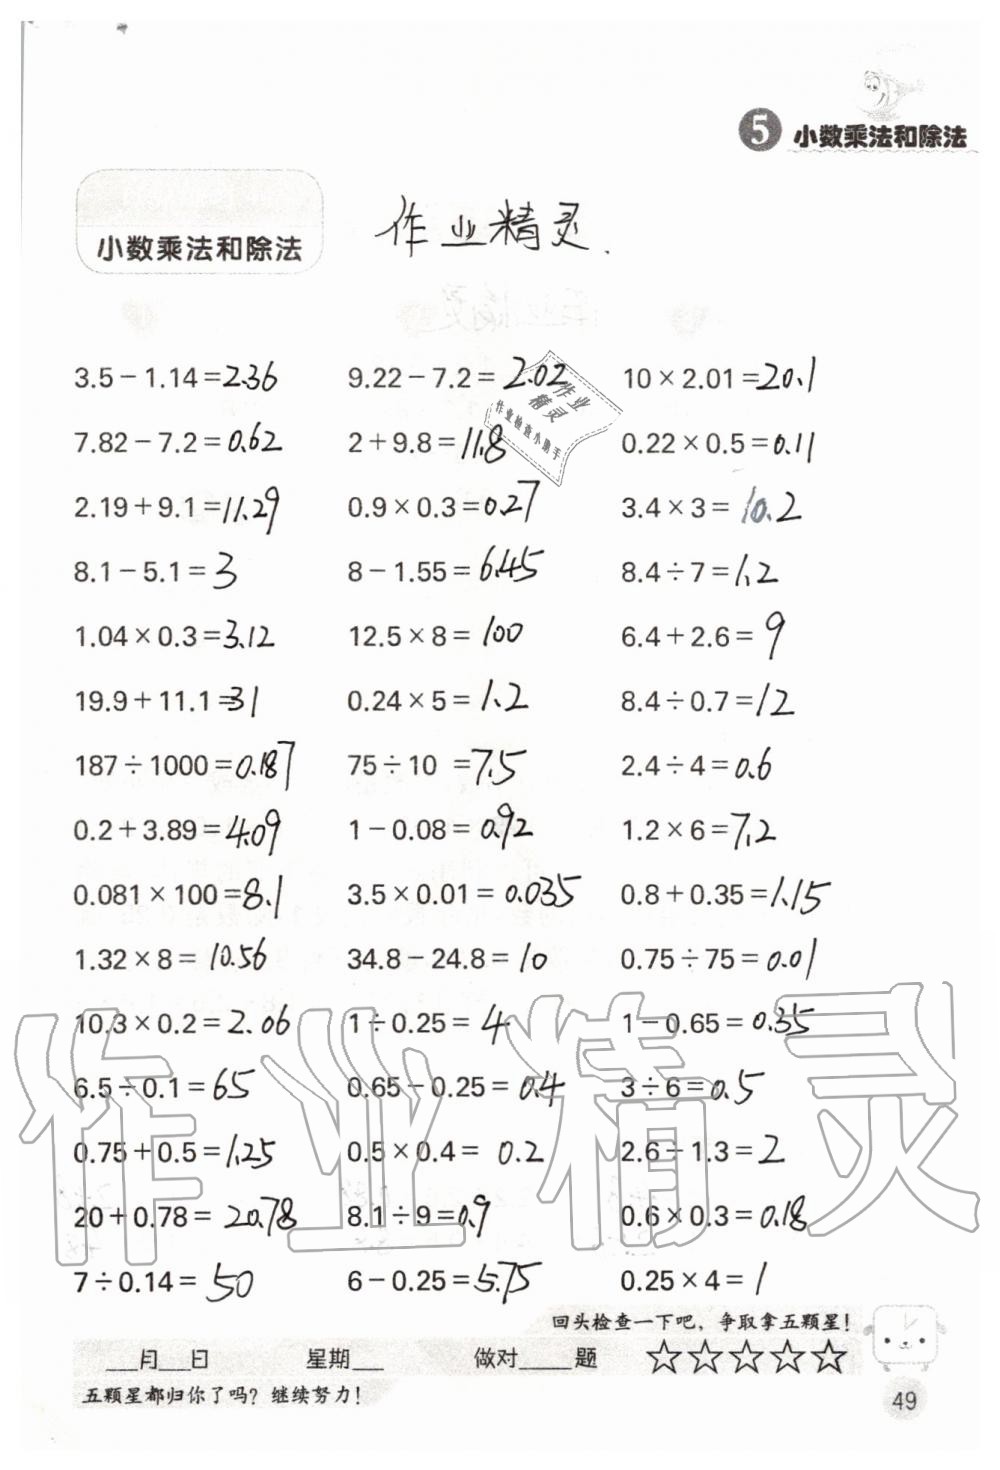 5 小数乘法和除法
小数乘法和除法
作业精灵.
作业
精灵
作业检查小助手
3.5－1.14＝2.36 9.22－7.2＝2.02 10×2.01＝20.1
7.82－7.2＝0.62 2＋9.8＝11.8 0.22×0.5＝0.11
2.19＋9.1＝11.29 0.9×0.3＝0.27 3.4×3＝10.2
8.1－5.1＝3 8－1.55＝6.45 8.4÷7＝1.2
1.04×0.3＝3.12 12.5×8＝100 6.4＋2.6＝9
19.9＋11.1＝31 0.24×5＝1.2 8.4÷0.7＝12
187÷1000＝0.187 75÷10＝7.5 2.4÷4＝0.6
0.2＋3.89＝4.09 1－0.08＝0.92 1.2×6＝7.2
0.081×100＝8.1 3.5×0.01＝0.035 0.8＋0.35＝1.15
1.32×8＝10.56 34.8－24.8＝10 0.75÷75＝0.01
10.3×0.2＝2.06 1÷0.25＝4 1－0.65＝0.35
6.5÷0.1＝65 0.65－0.25＝0.4 3÷6＝0.5
0.75＋0.5＝1.25 0.5×0.4＝0.2 2.6÷1.3＝2
20＋0.78＝20.78 8.1÷9＝0.9 0.6×0.3＝0.18
7÷0.14＝50 6－0.25＝5.75 0.25×4＝1
作业精灵
回头检查一下吧，争取拿五颗星！
___月___日 星期___ 做对_____题 ☆☆☆☆☆
五颗星都归你了吗？继续努力！
49